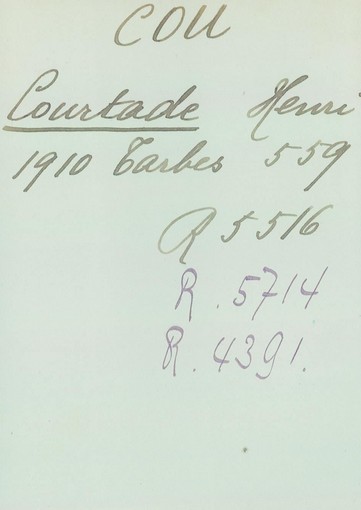 COU
Courtade Henri
1910 Tarbes 559
R 5516
R. 5714
R. 4391.